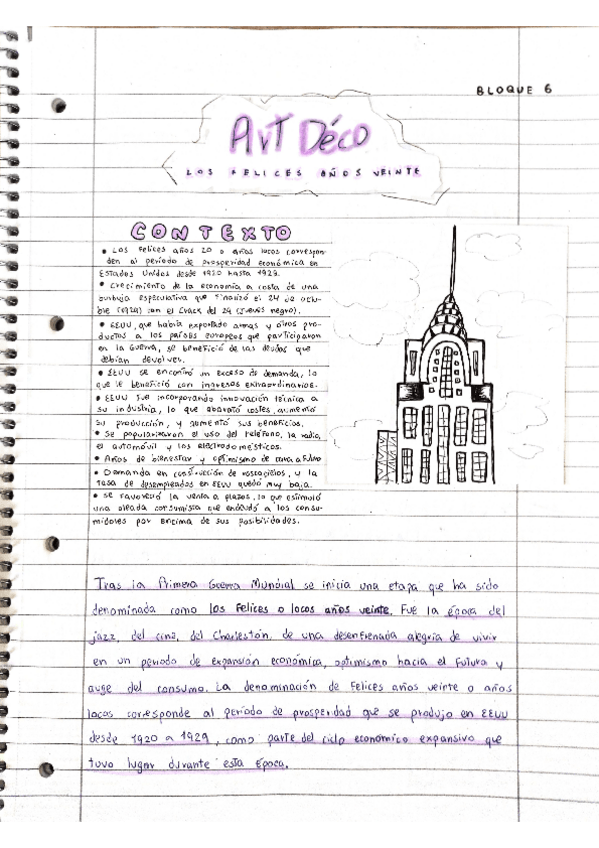 BLOQUE 6
Art Déco
LOS FELICES AÑOS VEINTE
CONTEXTO
• Los felices años 20 o años locos correspon-
den al periodo de prosperidad económica en
Estados Unidos desde 1920 hasta 1929.
• Crecimiento de la economía a costa de una
burbuja especulativa que finalizó el 24 de octu-
bre (1929) con el Crack del 29 (jueves negro).
• EEUU, que había exportado armas y otros pro-
ductos a los países europeos que participaron
en la Guerra, se benefició de las deudas que
debían devolver.
• EEUU se encontró un exceso de demanda, lo
que le benefició con ingresos extraordinarios.
• EEUU fue incorporando innovación técnica a
su industria, lo que abarató costes, aumentó
su producción, y aumentó sus beneficios.
• Se popularizaron el uso del teléfono, la radio,
el automóvil y los electrodomésticos.
• Años de bienestar y optimismo de cara a futuro
• Demanda en construcción de rascacielos, y la
tasa de desempleados en EEUU quedó muy baja.
• Se favoreció la venta a plazos, lo que estimuló
una oleada consumista que endeudó a los consu-
midores por encima de sus posibilidades.
Tras la Primera Guerra Mundial se inicia una etapa que ha sido
denominada como los felices o locos años veinte. Fue la época del
jazz, del cine, del Charlestón, de una desenfrenada alegría de vivir
en un periodo de expansión económica, optimismo hacia el futuro y
auge del consumo. La denominación de Felices años veinte o años
locos corresponde al período de prosperidad que se produjo en EEUU
desde 1920 a 1929, como parte del ciclo económico expansivo que
tuvo lugar durante esta época.